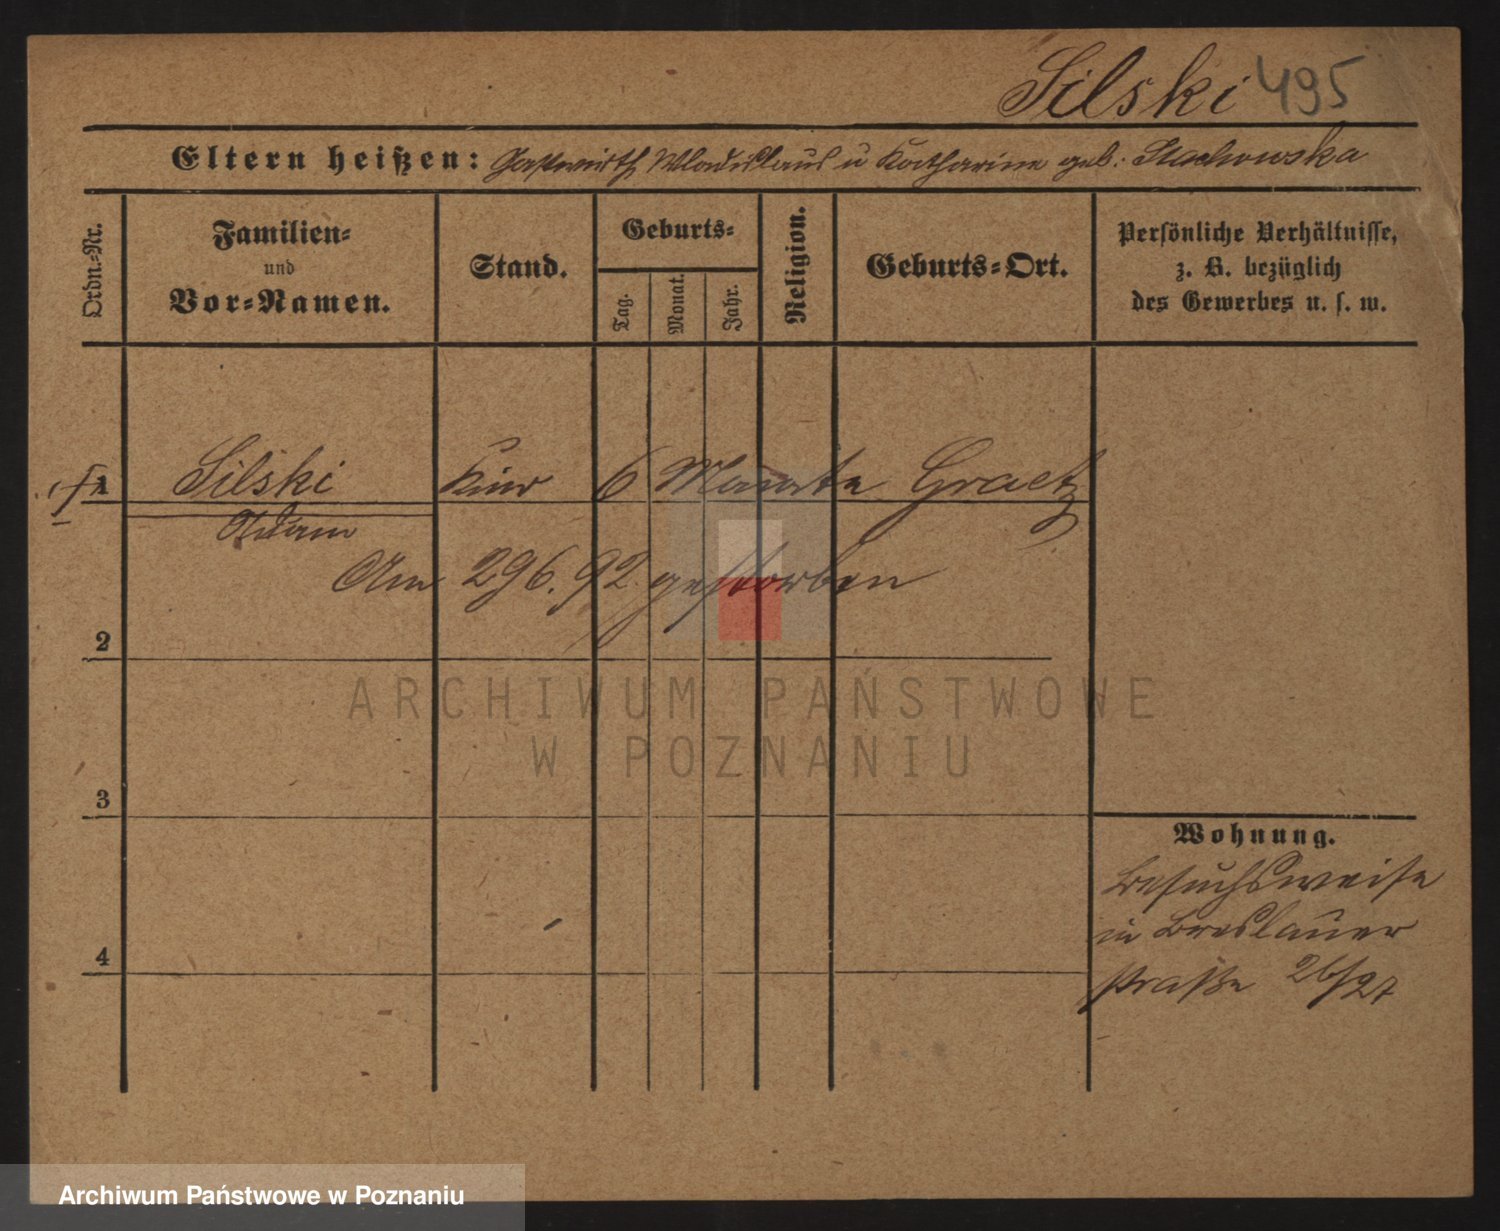 Silski 495
Eltern heißen: Gastwirth Wladislaus u Katharine geb. Stachowska
Ordn.-Nr.
Familien-
und
Vor-Namen.
Stand.
Geburts-
Tag.
Monat.
Jahr.
Religion.
Geburts-Ort.
Persönliche Verhältnisse,
z. B. bezüglich
des Gewerbes u. s. w.
1 Silski Kind 6 Monate Graetz
Adam
Am 29 6. 92 gestorben
2
ARCHIWUM PAŃSTWOWE
W POZNANIU
3
Wohnung.
Besuchsweise
in Breslauer
straße 26/27
4
Archiwum Państwowe w Poznaniu